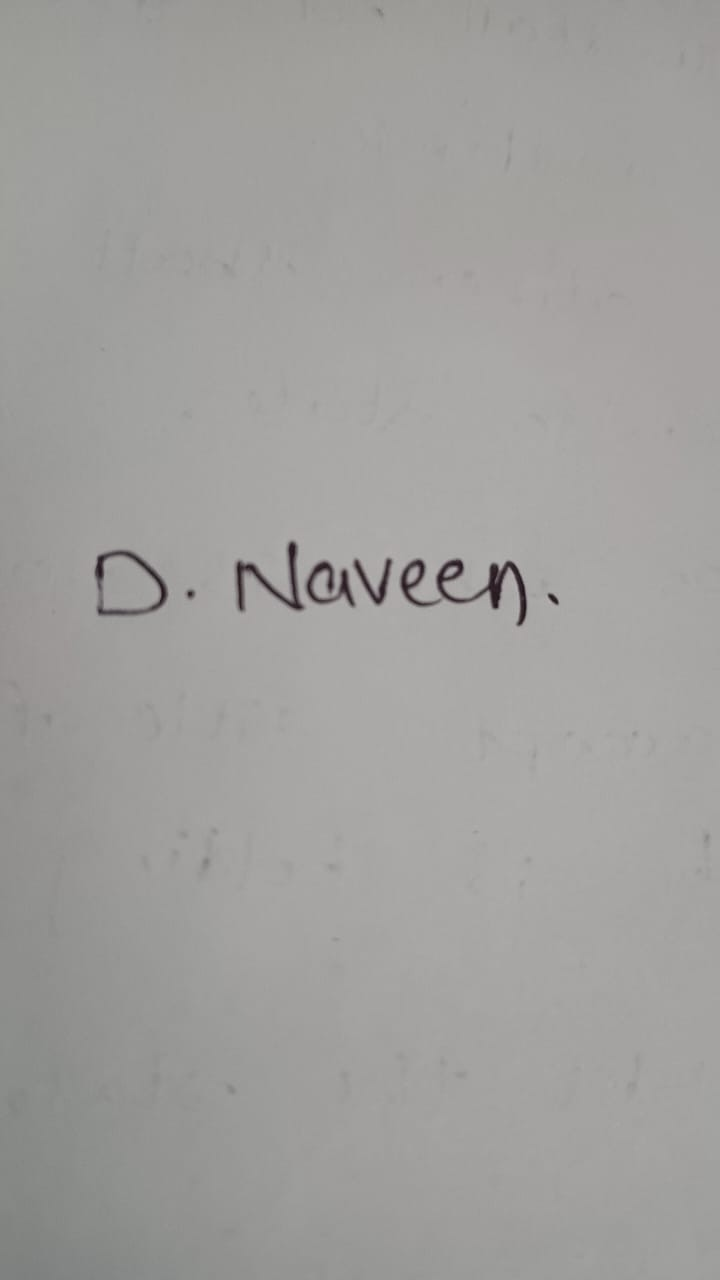 D. Naveen.